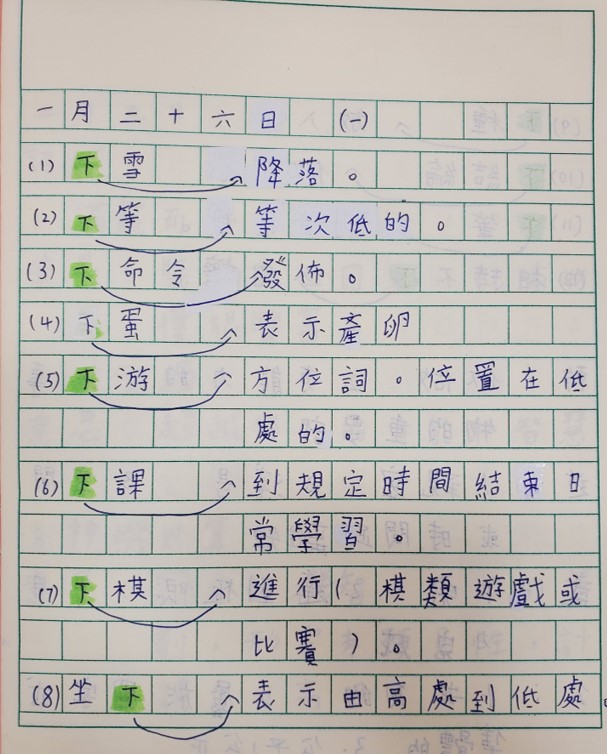 一月二十六日(一)
(1)下雪 降落。
(2)下等 等次低的。
(3)下命令 發佈。
(4)下蛋 表示產卵
(5)下游 方位詞。位置在低
處的。
(6)下課 到規定時間結束日
常學習。
(7)下棋 進行(棋類遊戲或
比賽)。
(8)坐下 表示由高處到低處。